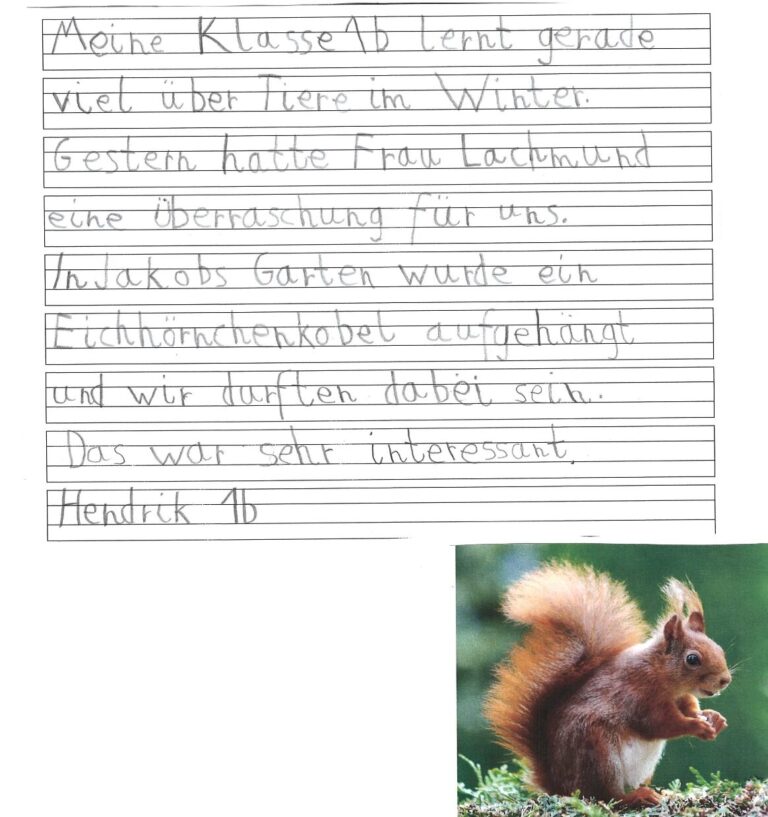 Meine Klasse 1b lernt gerade
viel über Tiere im Winter.
Gestern hatte Frau Lachmund
eine Überraschung für uns.
In Jakobs Garten wurde ein
Eichhörnchenkobel aufgehängt
und wir durften dabei sein.
Das war sehr interessant.
Hendrik 1b